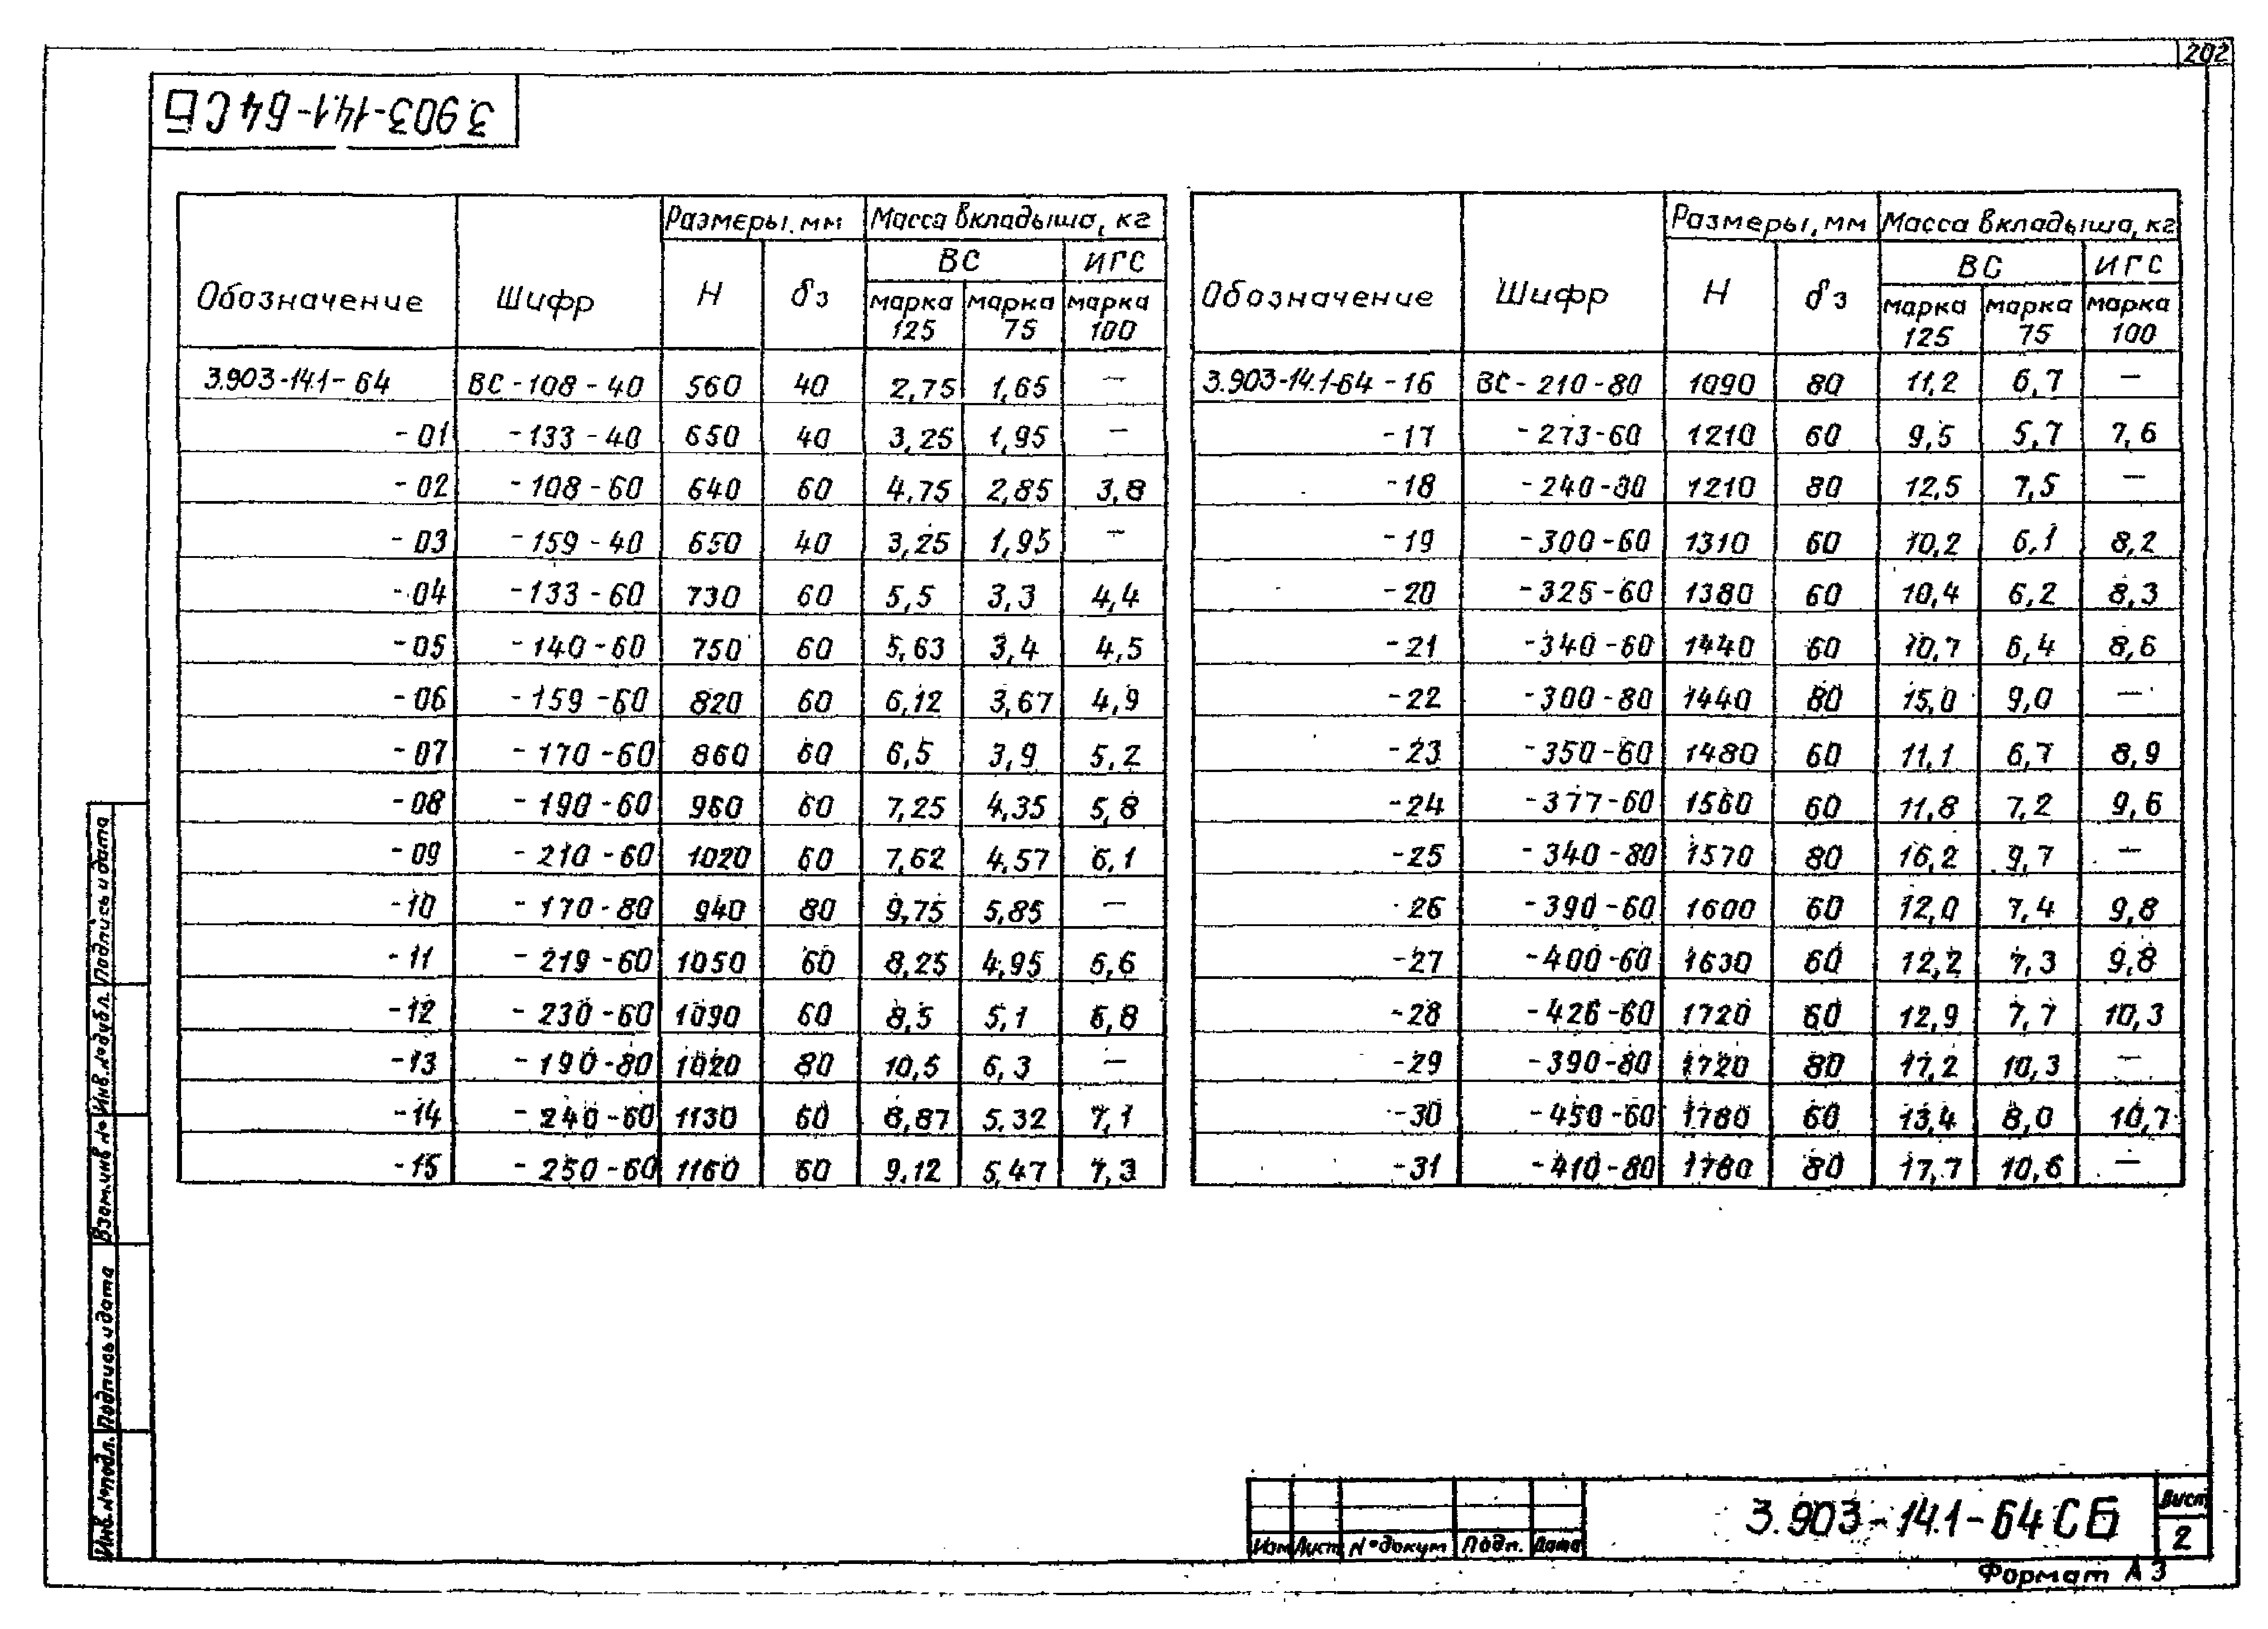 202
3.903-14.1-64 СБ
Обозначение Шифр Размеры, мм Масса вкладыша, кг
Н δз ВС ИГС
марка 125 марка 75 марка 100
3.903-14.1-64 ВС-108-40 560 40 2,75 1,65 —
-01 -133-40 650 40 3,25 1,95 —
-02 -108-60 640 60 4,75 2,85 3,8
-03 -159-40 650 40 3,25 1,95 —
-04 -133-60 730 60 5,5 3,3 4,4
-05 -140-60 750 60 5,63 3,4 4,5
-06 -159-60 820 60 6,12 3,67 4,9
-07 -170-60 860 60 6,5 3,9 5,2
-08 -190-60 960 60 7,25 4,35 5,8
-09 -210-60 1020 60 7,62 4,57 6,1
-10 -170-80 940 80 9,75 5,85 —
-11 -219-60 1050 60 8,25 4,95 6,6
-12 -230-60 1090 60 8,5 5,1 6,8
-13 -190-80 1020 80 10,5 6,3 —
-14 -240-60 1130 60 8,87 5,32 7,1
-15 -250-60 1160 60 9,12 5,47 7,3
Обозначение Шифр Размеры, мм Масса вкладыша, кг
Н δз ВС ИГС
марка 125 марка 75 марка 100
3.903-14.1-64-16 ВС-210-80 1090 80 11,2 6,7 —
-17 -273-60 1210 60 9,5 5,7 7,6
-18 -240-80 1210 80 12,5 7,5 —
-19 -300-60 1310 60 10,2 6,1 8,2
-20 -325-60 1380 60 10,4 6,2 8,3
-21 -340-60 1440 60 10,7 6,4 8,6
-22 -300-80 1440 80 15,0 9,0 —
-23 -350-60 1480 60 11,1 6,7 8,9
-24 -377-60 1560 60 11,8 7,2 9,6
-25 -340-80 1570 80 16,2 9,7 —
-26 -390-60 1600 60 12,0 7,4 9,8
-27 -400-60 1630 60 12,2 7,3 9,8
-28 -426-60 1720 60 12,9 7,7 10,3
-29 -390-80 1720 80 17,2 10,3 —
-30 -450-60 1780 60 13,4 8,0 10,7
-31 -410-80 1780 80 17,7 10,6 —
Инв.№подл. Подпись и дата Взам.инв.№ Инв.№дубл. Подпись и дата
Изм Лист №докум Подп. Дата
3.903-14.1-64 СБ
Лист
2
Формат А3